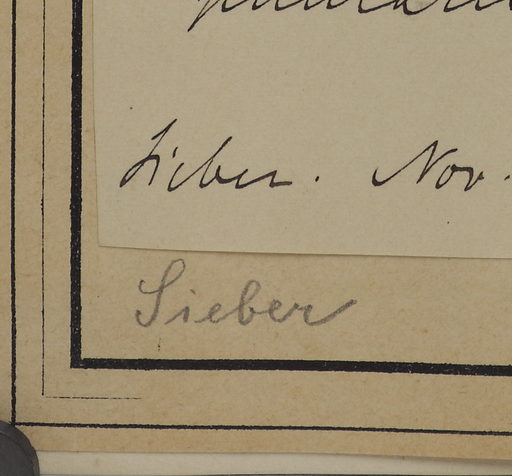 Sieber. Nov.
Sieber